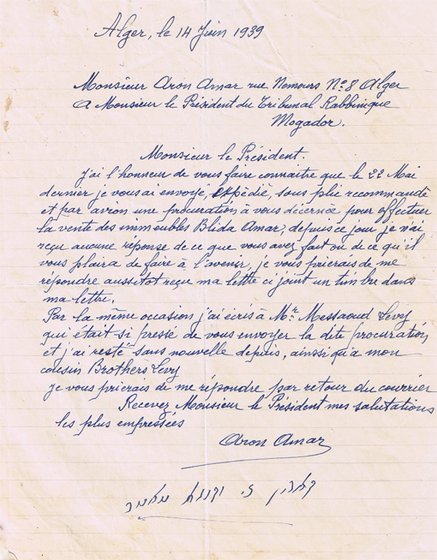 Alger, le 14 Juin 1939
Monsieur Aron Amar rue Nemours Nº 8 Alger
A Monsieur le Président du Tribunal Rabbinique
Mogador.
Monsieur le Président.
J'ai l'honneur de vous faire connaitre que le 22 Mai
dernier je vous ai envoyé, expédié, sous plie recommandé
et par avion une procuration à vous décernée pour effectuer
la vente des immeubles Blida Amar, depuis ce jour je n'ai
reçu aucune réponse de ce que vous avez fait ou de ce qu'il
vous plaira de faire à l'avenir, je vous prierais de me
répondre aussitot reçu ma lettre ci joint un timbre dans
ma lettre.
Par la même occasion j'ai écris à Mr. Messaoud Levy
qui était si pressé de vous envoyer la dite procuration
et j'ai resté sans nouvelle depuis, ainssi qu'a mon
cousin Brothers Levy
je vous prierais de me répondre par retour du courrier
Recevez Monsieur le Président mes salutations
les plus empressées
Aron Amar